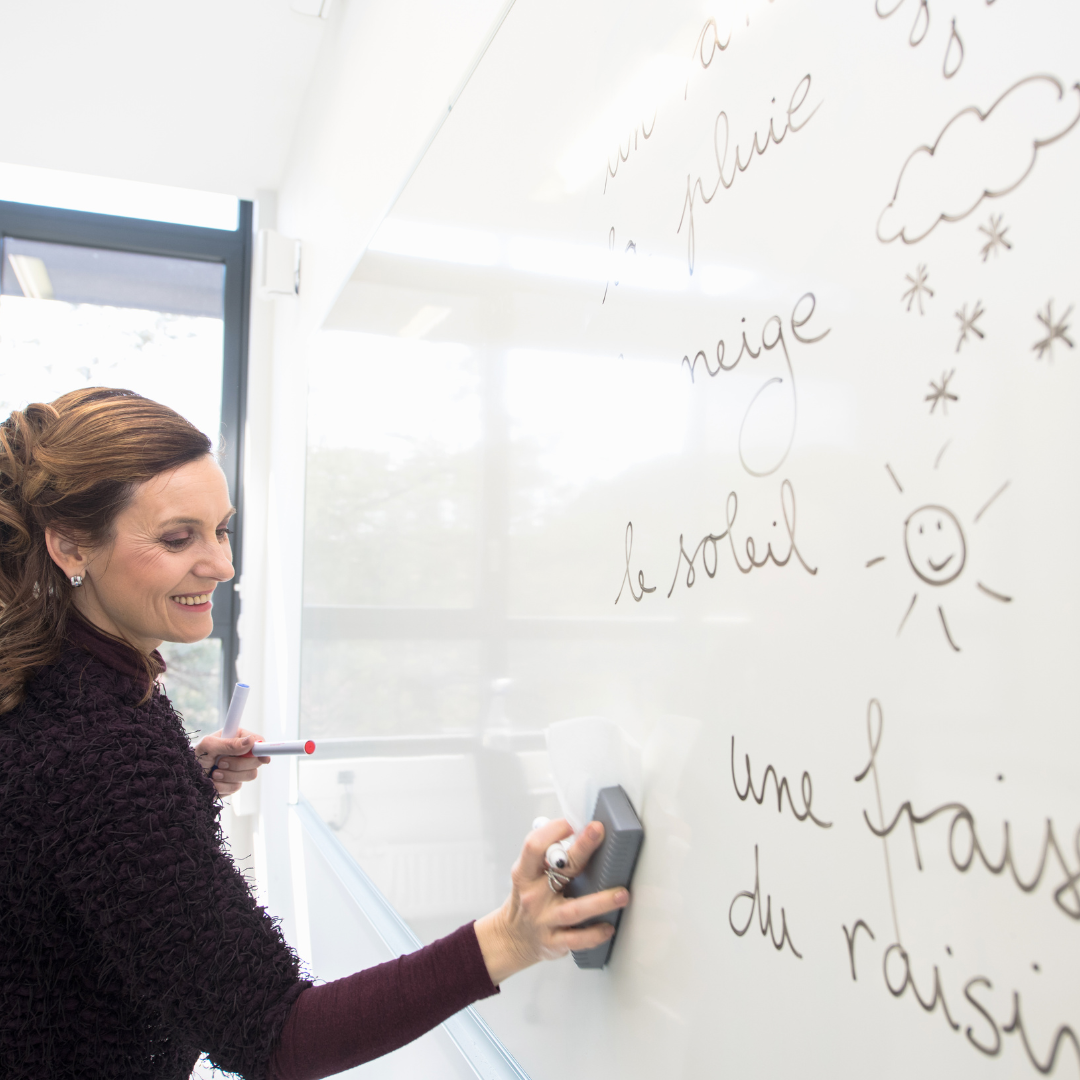 un
la pluie
neige
le soleil
une frais
du raisin